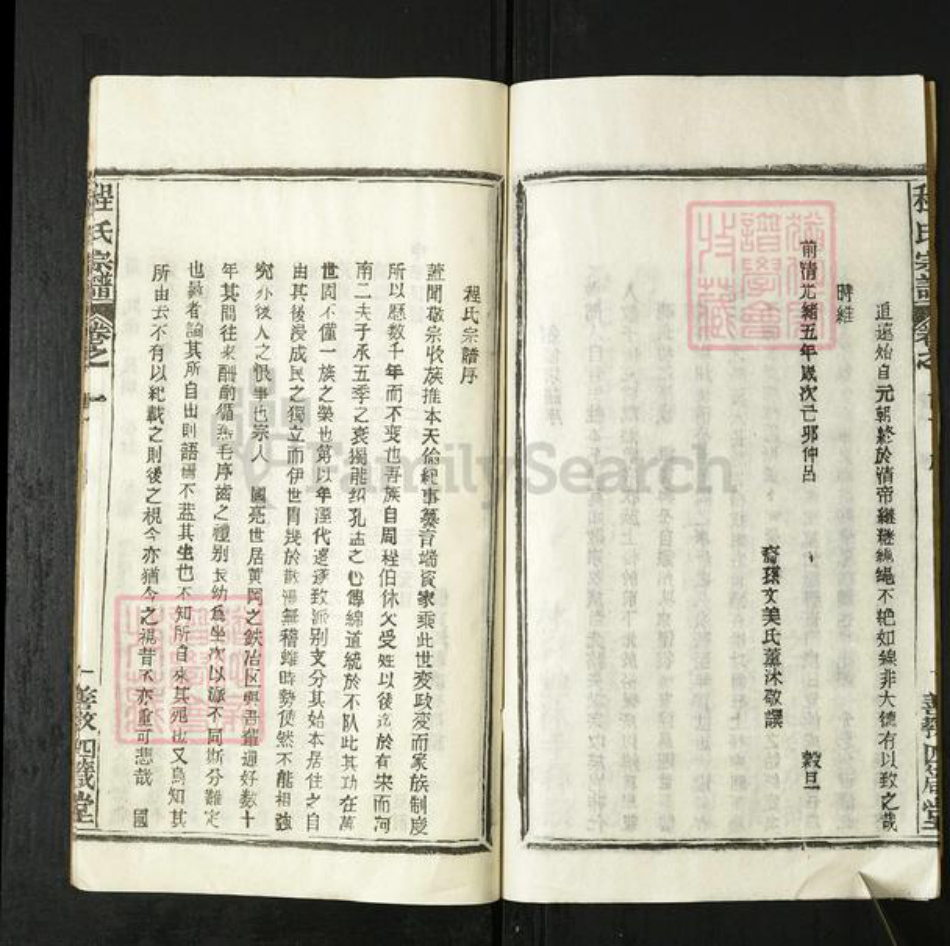 追遠始自元朝終於清帝繼繼繩繩不絕如線非大德有以致之哉
時維
前清光緒五年歲次己卯仲呂 穀旦
裔孫文美氏薰沐敬譔
程氏宗譜
卷之一
程氏宗譜序
蓋聞敬宗收族推本天倫紀事纂言端資家乘此世変政変而家族制度
所以歷数千年而不変也吾族自周程伯休父受姓以後迄於有宋而河
南二夫子承五季之衰獨能紹孔孟之心傳綿道統於不队此其功在萬
世固不僅一族之榮也第以年湮代遠逐致派别支分其始本居住之自
由其後浸成民之獨立而伊世胄幾於散漫無稽雖時勢使然不能相強
究亦後人之恨事也宗人 國亮世居黃岡之鉄冶区與吾輩通好数十
年其間往来酬酌循燕毛序齒之禮别長幼爲坐次以派不同斯分難定
也曩者論其所自出則語焉不盖其生也不知所自來其死也又烏知其
所由去不有以紀載之則後之視今亦猶今之視昔不亦重可悲哉 國
程氏宗譜
卷之一
善教四箴堂
FamilySearch